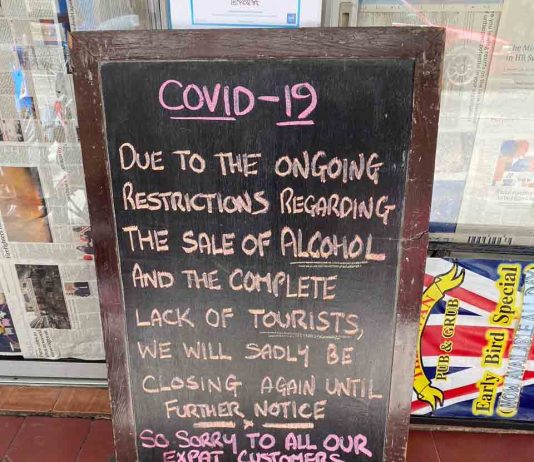 COVID-19
DUE TO THE ONGOING
RESTRICTIONS REGARDING
THE SALE OF ALCOHOL
AND THE COMPLETE
LACK OF TOURISTS,
WE WILL SADLY BE
CLOSING AGAIN UNTIL
FURTHER NOTICE
SO SORRY TO ALL OUR
EXPAT CUSTOMERS
PUB & GRUB
Early Bird Special
in HR Sou